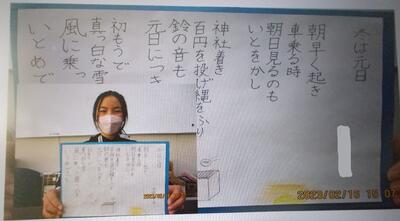 冬は元日
朝早く起き
車乗る時
朝日見るのも
いとをかし
神社着き
百円を投げ縄をふり
鈴の音も
元日につき
初もうで
真っ白な雪
風に乗っ
いとめで
2023/02/16 16 07